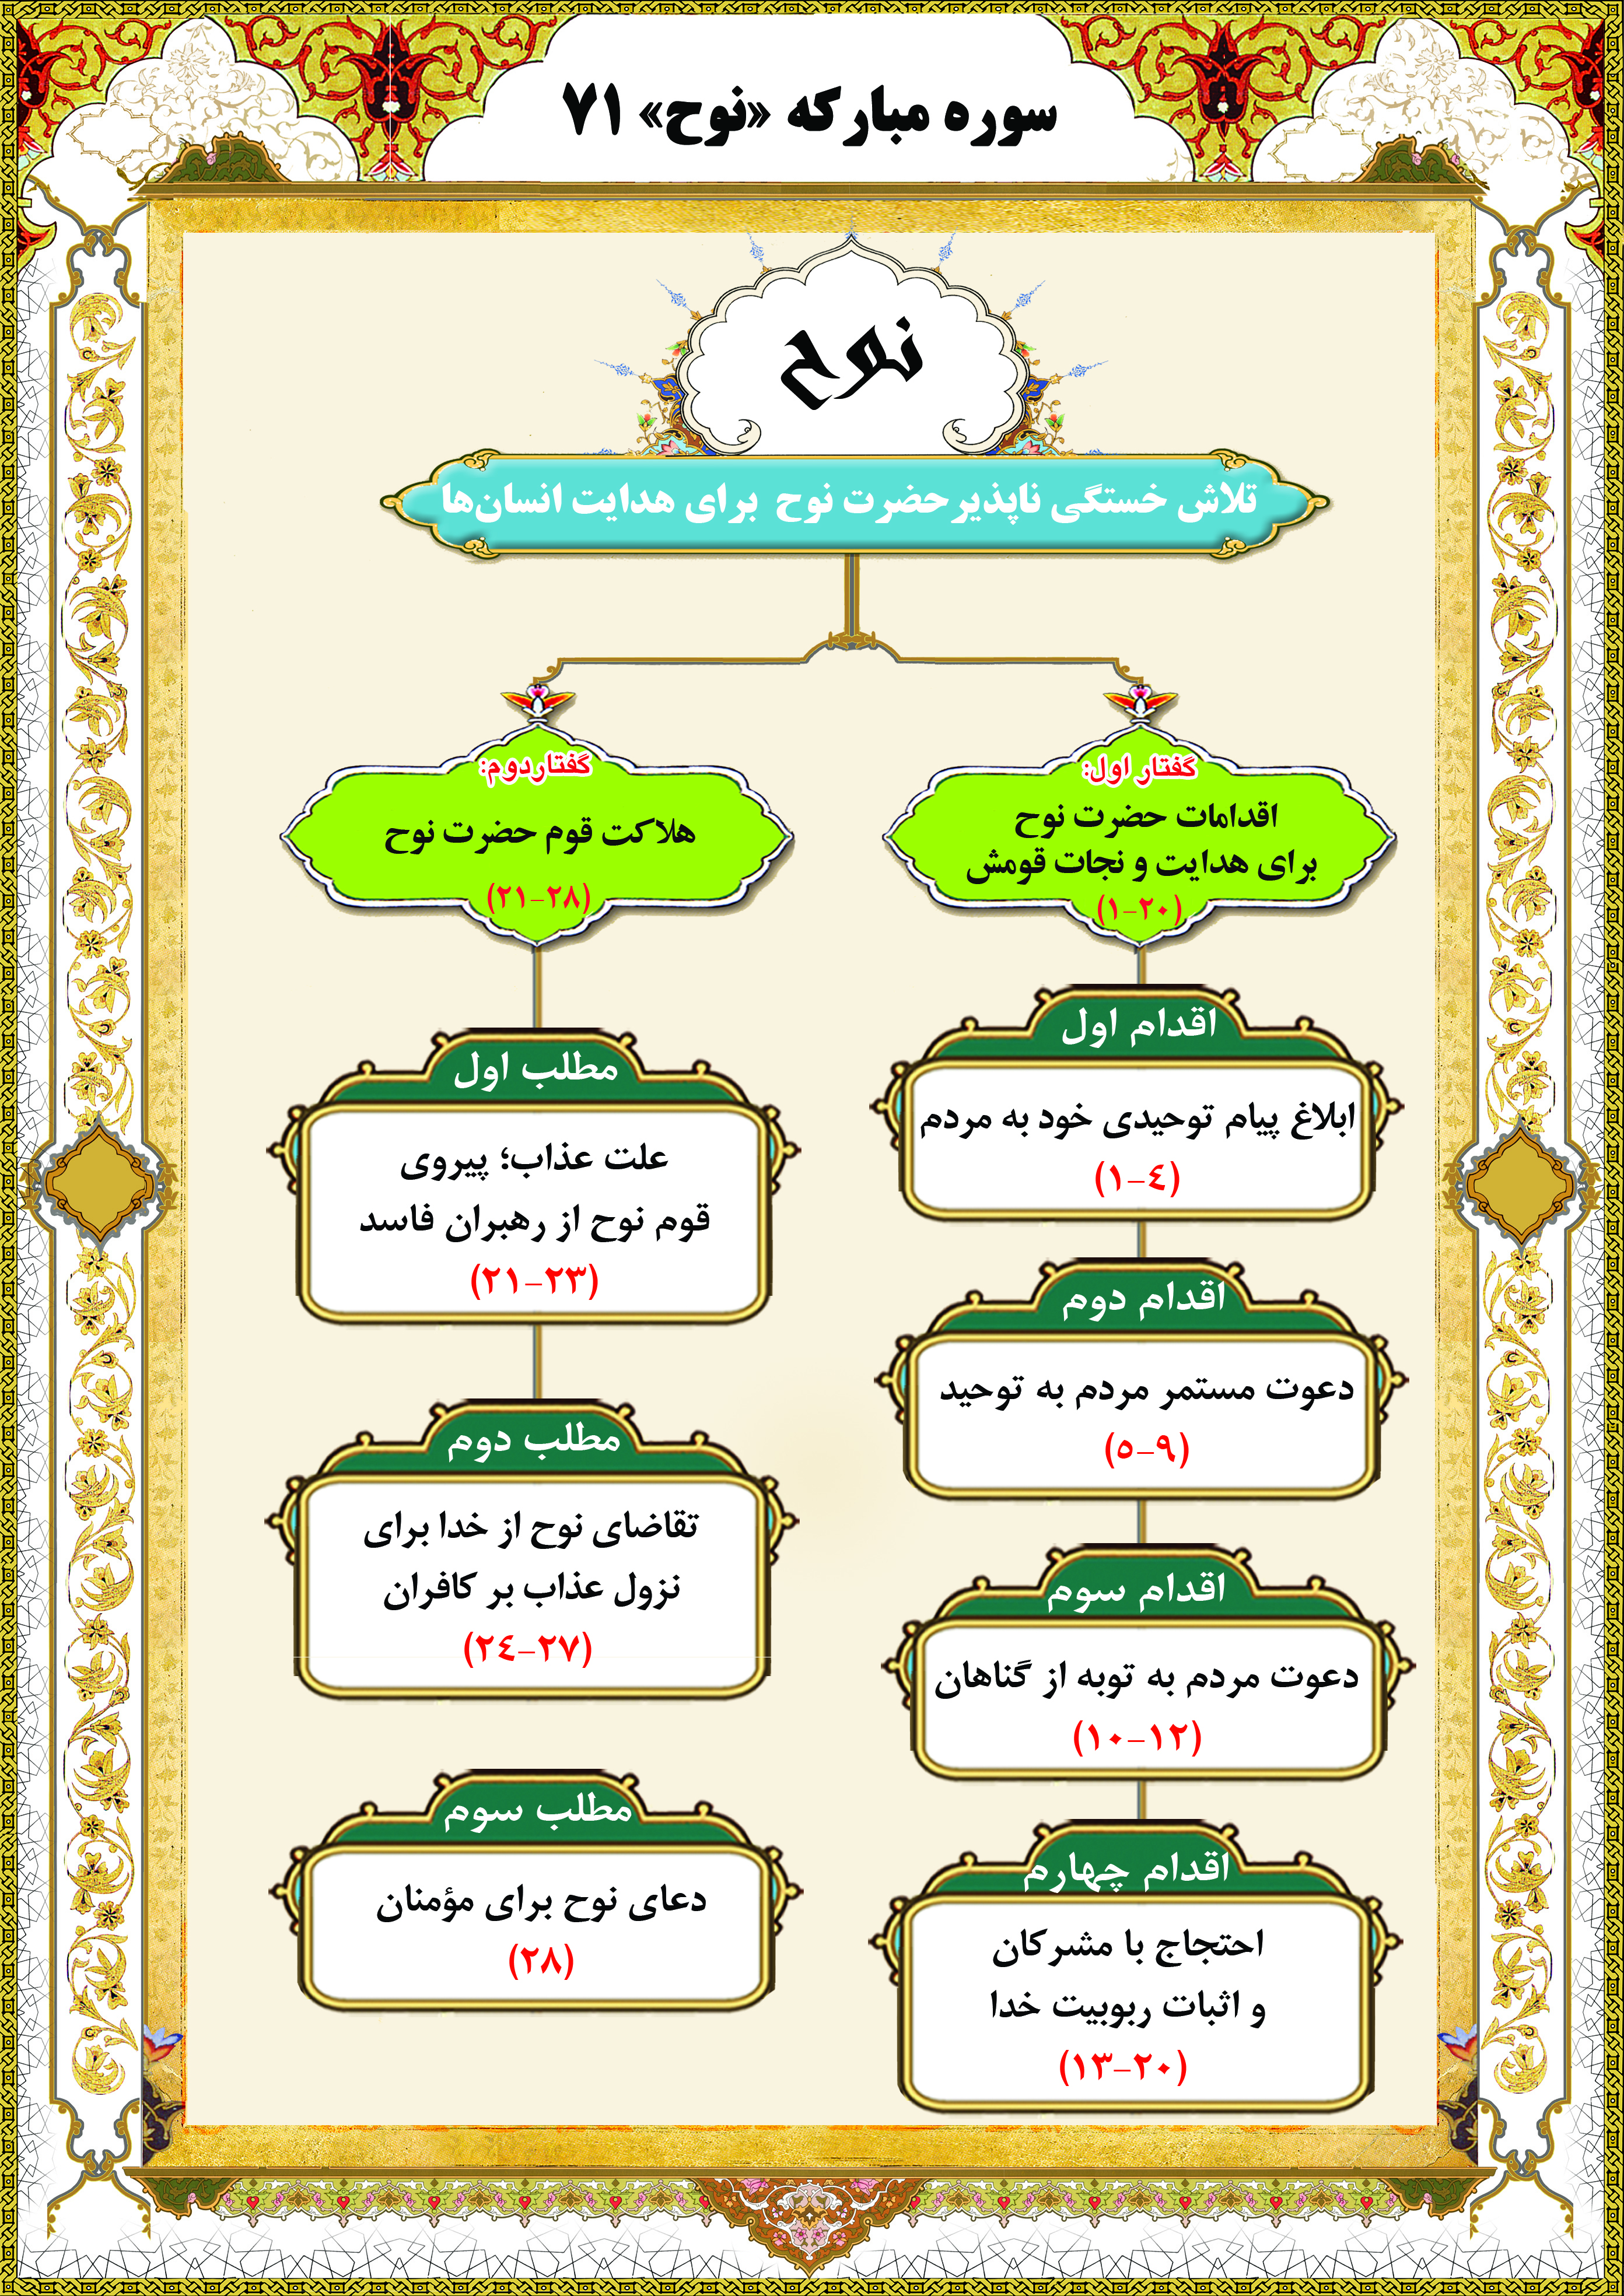 سوره مبارکه «نوح» ۷۱
نوح
تلاش خستگی ناپذیرحضرت نوح برای هدایت انسان‌ها
گفتار اول:
اقدامات حضرت نوح
برای هدایت و نجات قومش
(۱-۲۰)
اقدام اول
ابلاغ پیام توحیدی خود به مردم
(۱-٤)
اقدام دوم
دعوت مستمر مردم به توحید
(٥-۹)
اقدام سوم
دعوت مردم به توبه از گناهان
(۱۰-۱۲)
اقدام چهارم
احتجاج با مشرکان
و اثبات ربوبیت خدا
(۱۳-۲۰)
گفتاردوم:
هلاکت قوم حضرت نوح
(۲۱-۲۸)
مطلب اول
علت عذاب؛ پیروی
قوم نوح از رهبران فاسد
(۲۱-۲۳)
مطلب دوم
تقاضای نوح از خدا برای
نزول عذاب بر کافران
(۲٤-۲۷)
مطلب سوم
دعای نوح برای مؤمنان
(۲۸)